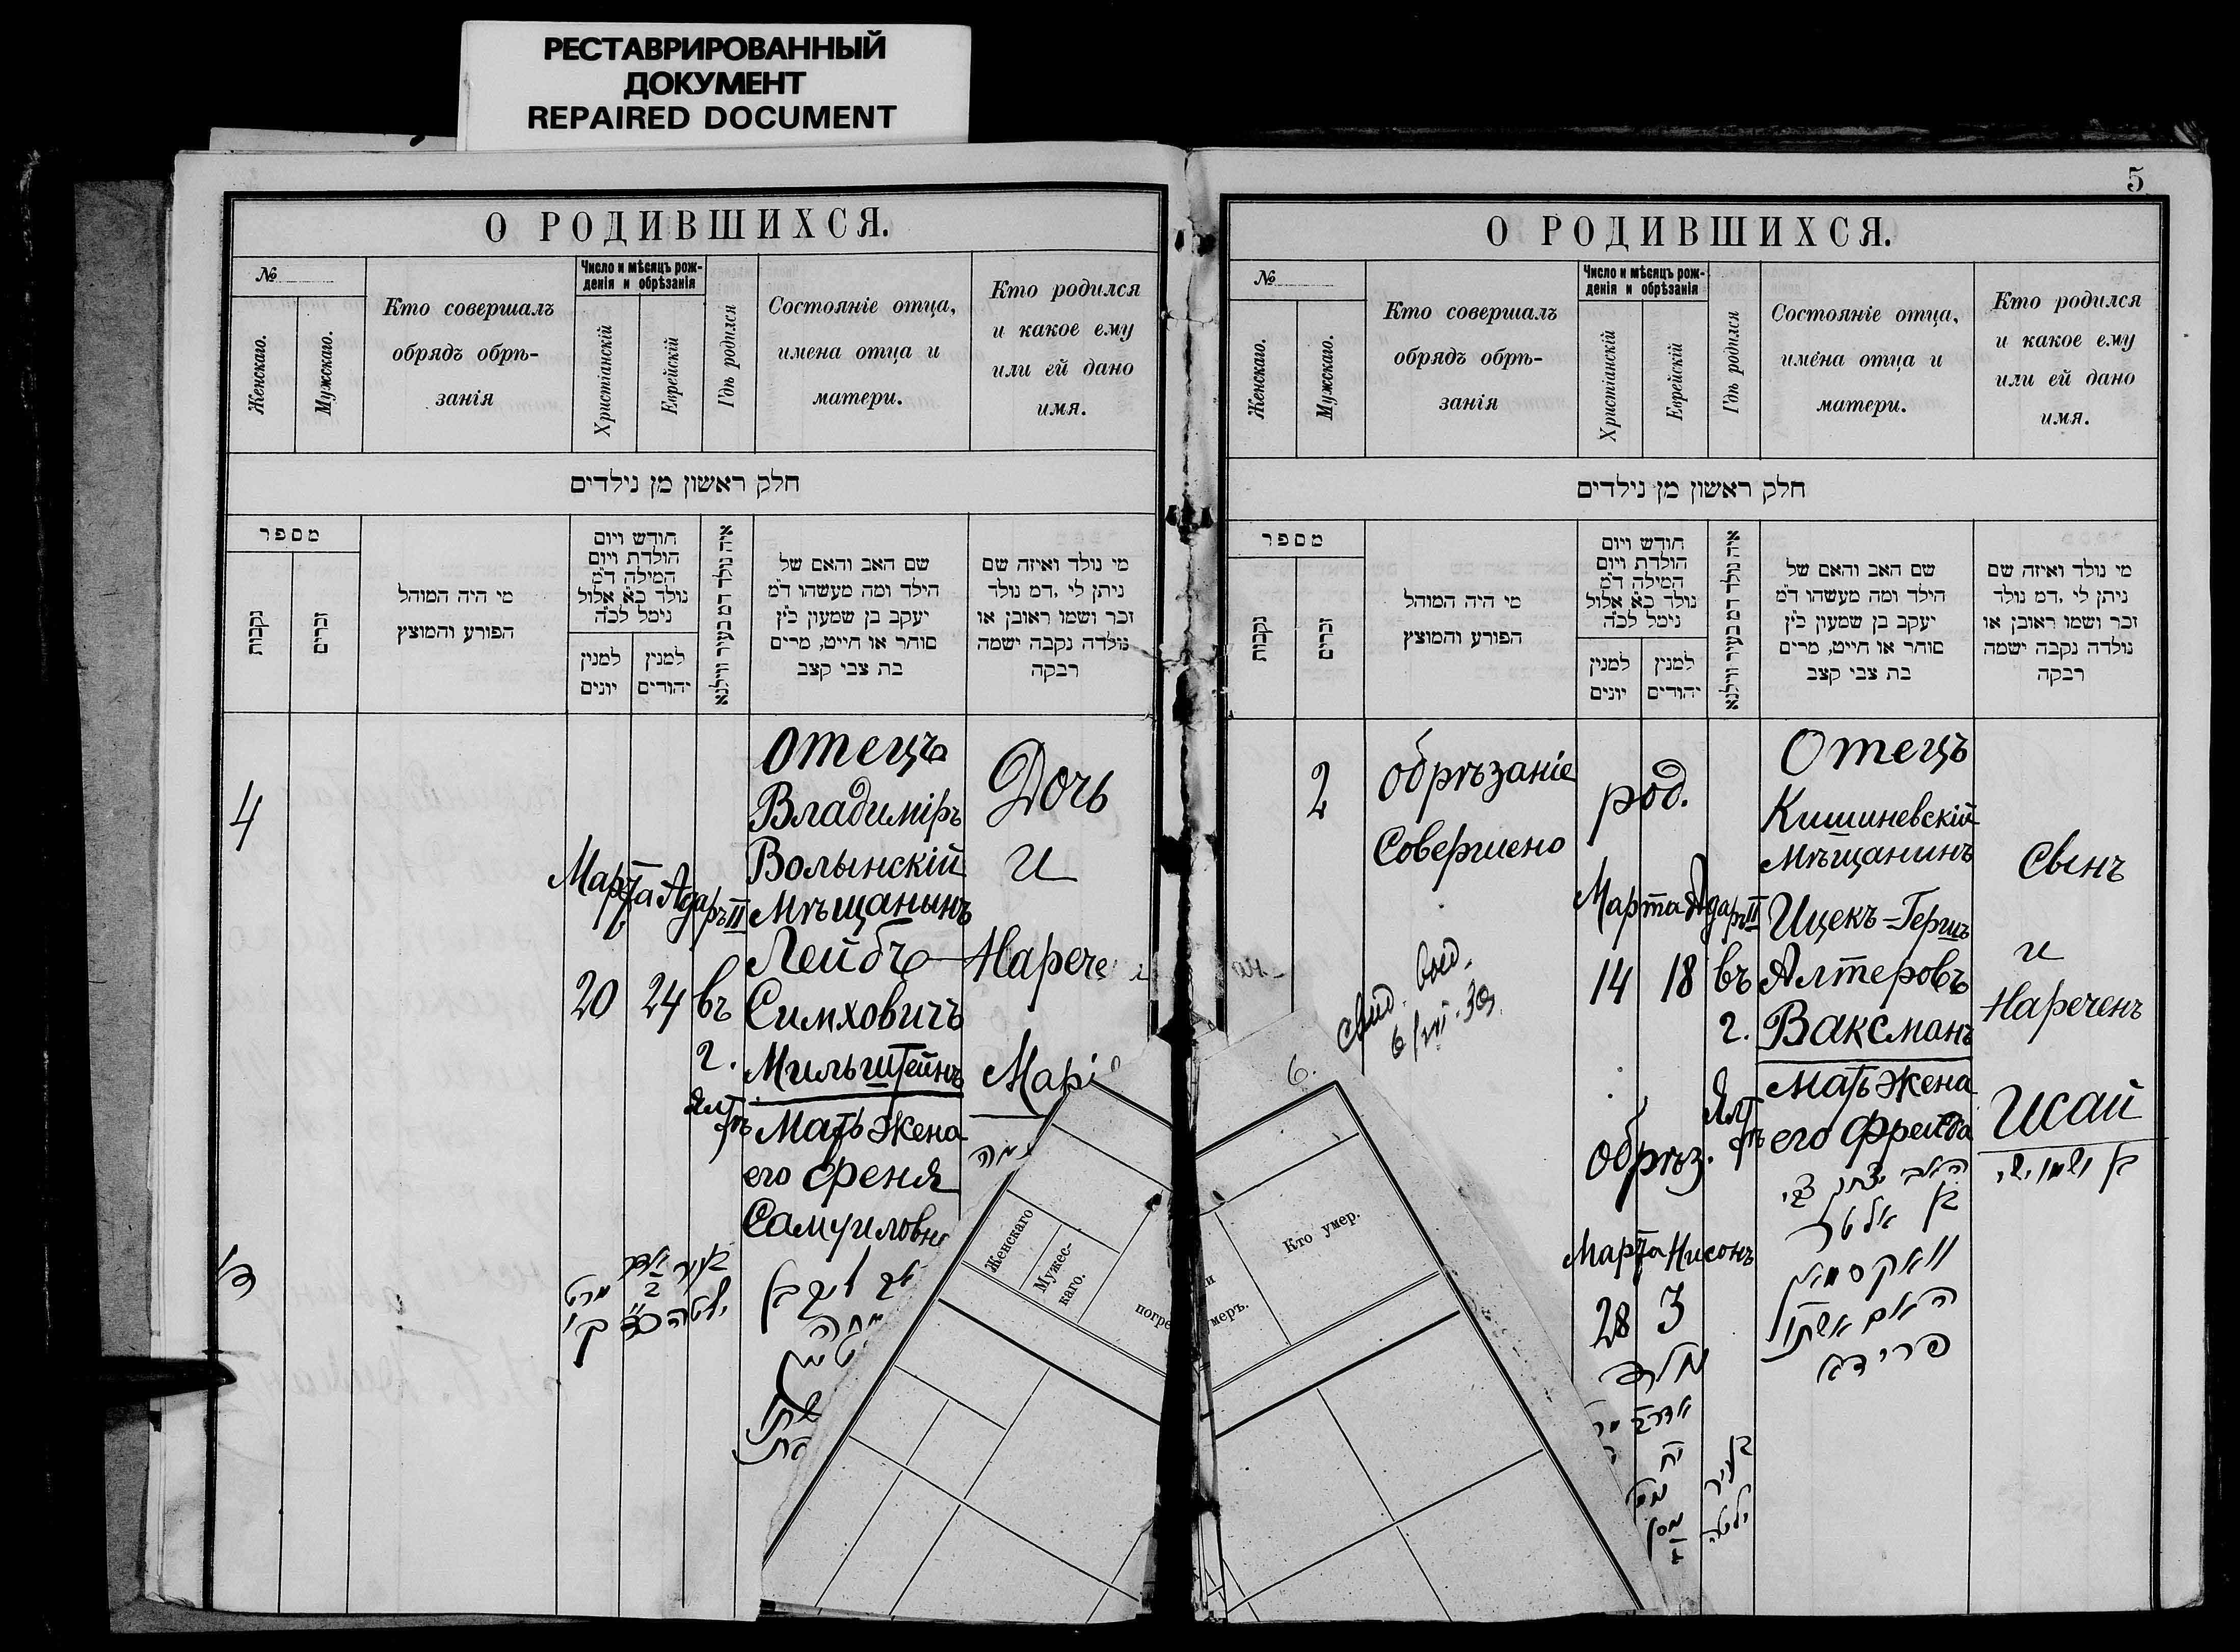 РЕСТАВРИРОВАННЫЙ
ДОКУМЕНТ
REPAIRED DOCUMENT
О РОДИВШИХСЯ.
№
Женскаго.
Мужскаго.
Кто совершалъ
обрядъ обрѣ-
занія
Число и мѣсяцъ рож-
денія и обрѣзанія
Христіанскій
Еврейскій
Гдѣ родился
Состояніе отца,
имена отца и
матери.
Кто родился
и какое ему
или ей дано
имя.
חלק ראשון מן נילדים
מספר
נקבות
זכרים
מי היה המוהל
הפורע והמוצץ
חודש ויום
הולדת ויום
המילה ד״מ
נולד כ״א אלול
נימל לכ״ה
למנין
יונים
למנין
יהודים
איה נולד דמ בעיר ווילנא
שם האב והאם של
הילד ומה מעשהו ד״מ
יעקב בן שמעון כ״ץ
סוחר או חייט, מרים
בת צבי קצב
מי נולד ואיזה שם
ניתן לי ,דמ נולד
זכר ושמו ראובן או
נולדה נקבה ישמה
רבקה
4
Марта Адаръ II
20 24 въ
г.
Ялтѣ
Отецъ
Владиміръ
Волынскій
Мѣщанынъ
Лейбъ
Симховичъ
Мильштейнъ
Мать жена
его Ѳреня
Самуиловн
Дочь
и
Нарече
Марі
מרט אדר בעיר
ב
כד יאלטה
Женскаго
Мужес-
каго.
погре
5
О РОДИВШИХСЯ.
№
Женскаго.
Мужскаго.
Кто совершалъ
обрядъ обрѣ-
занія
Число и мѣсяцъ рож-
денія и обрѣзанія
Христіанскій
Еврейскій
Гдѣ родился
Состояніе отца,
имена отца и
матери.
Кто родился
и какое ему
или ей дано
имя.
חלק ראשון מן נילדים
מספר
נקבות
זכרים
מי היה המוהל
הפורע והמוצץ
חודש ויום
הולדת ויום
המילה ד״מ
נולד כ״א אלול
נימל לכ״ה
למנין
יונים
למנין
יהודים
איה נולד דמ בעיר ווילנא
שם האב והאם של
הילד ומה מעשהו ד״מ
יעקב בן שמעון כ״ץ
סוחר או חייט, מרים
בת צבי קצב
מי נולד ואיזה שם
ניתן לי ,דמ נולד
זכר ושמו ראובן או
נולדה נקבה ישמה
רבקה
2
обрѣзаніе
Совершено
свид. выд.
6/VII-30
род.
Марта Адаръ II
14 18 въ
г.
Ялтѣ
обрѣз.
Марта Нисонъ
28 3
אדר ב
יח
בעיר
יאלטה
Отецъ
Кишиневскій
Мѣщанинъ
Ицекъ-Гершъ
Алтеровъ
Ваксманъ
Мать жена
его Фрейда
האב יצחק צבי
בן אלטר
וואקסמאן
האם אשתו
פרידא
Сынъ
и
Нареченъ
Исай
בן ושמו ישי
6.
Кто умер.
умеръ.